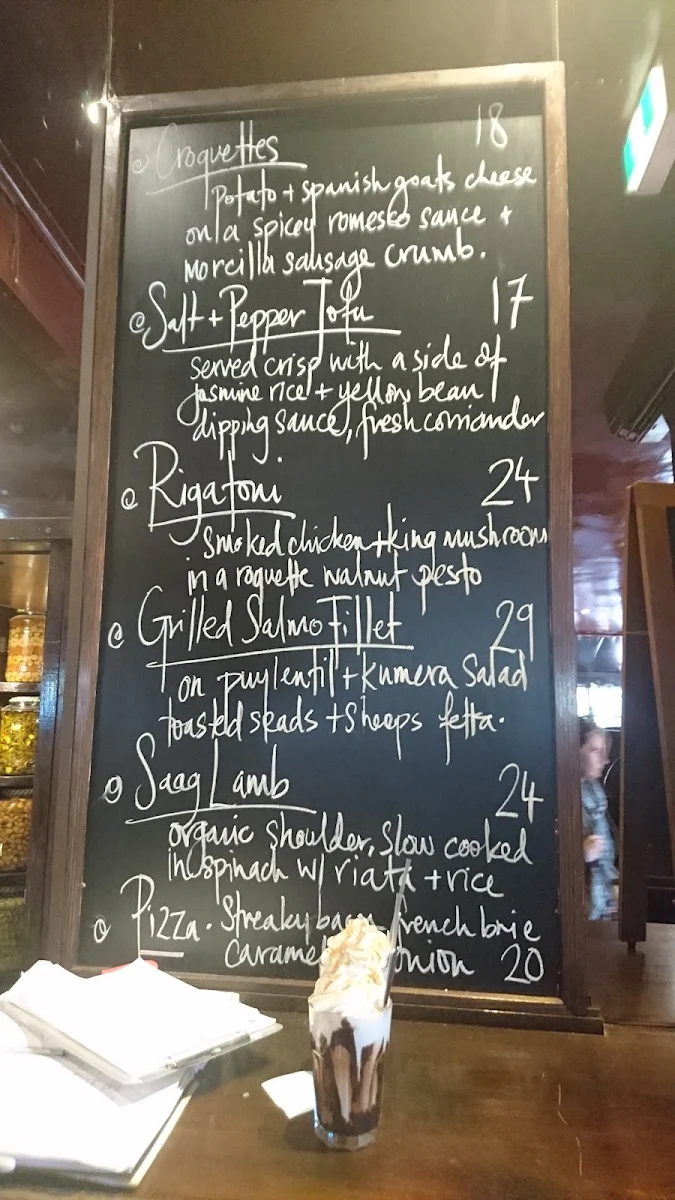 Croquettes 18
potato + spanish goats cheese
on a spicey romesco sauce +
morcilla sausage crumb.
Salt + Pepper Tofu 17
served crisp with a side of
jasmine rice + yellow bean
dipping sauce, fresh corriander
Rigatoni 24
Smoked chicken + king mushroom
in a roquette walnut pesto
Grilled Salmo Fillet 29
on puy lentil + Kumera Salad
toasted seads + Sheeps fetta.
Saag Lamb 24
organic shoulder, slow cooked
in spinach w/ riata + rice
Pizza. Streaky french brie
onion 20